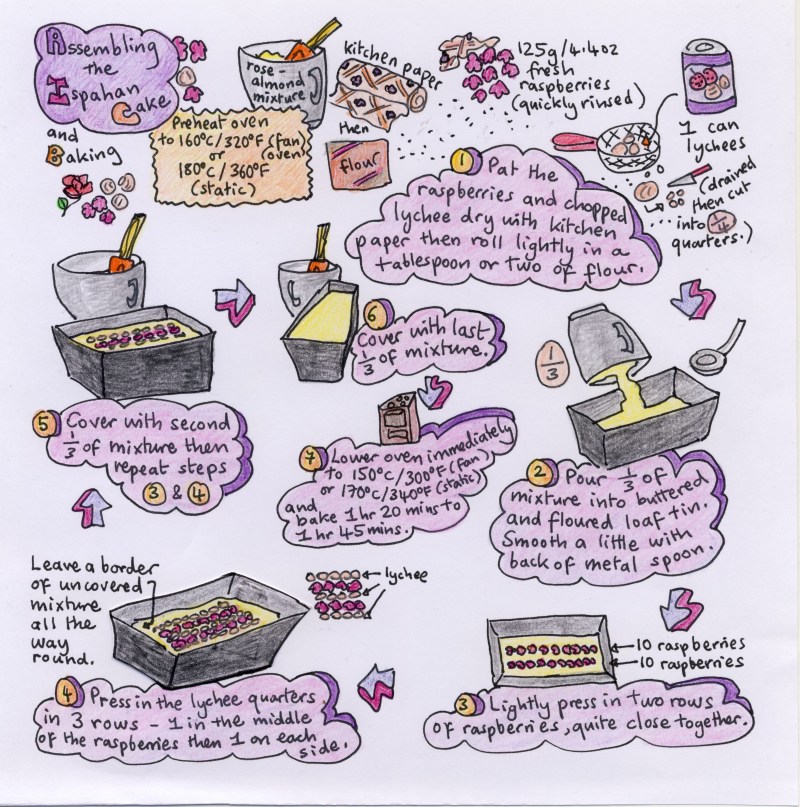 Assembling
the
Ispahan
Cake
and
Baking
rose-
almond
mixture
Preheat oven
to 160°C/320°F (fan)
or (oven)
180°C/360°F
(static)
kitchen paper
then
flour
125g/4.4oz
fresh
raspberries
(quickly rinsed)
1 can
lychees
(drained
then cut
into 1/4
quarters.)
1 Pat the
raspberries and chopped
lychee dry with kitchen
paper then roll lightly in a
tablespoon or two of flour.
1/3
2 Pour 1/3 of
mixture into buttered
and floured loaf tin.
Smooth a little with
back of metal spoon.
10 raspberries
10 rapberries
3 Lightly press in two rows
of raspberries, quite close together.
Leave a border
of uncovered
mixture
all the
way
round.
lychee
4 Press in the lychee quarters
in 3 rows - 1 in the middle
of the raspberries then 1 on each
side.
5 Cover with second
1/3 of mixture then
repeat steps
3 & 4
6 Cover with last
1/3 of mixture.
7 Lower oven immediately
to 150°C/300°F (fan)
or 170°C/340°F (static)
and
bake 1 hr 20 mins to
1 hr 45 mins.